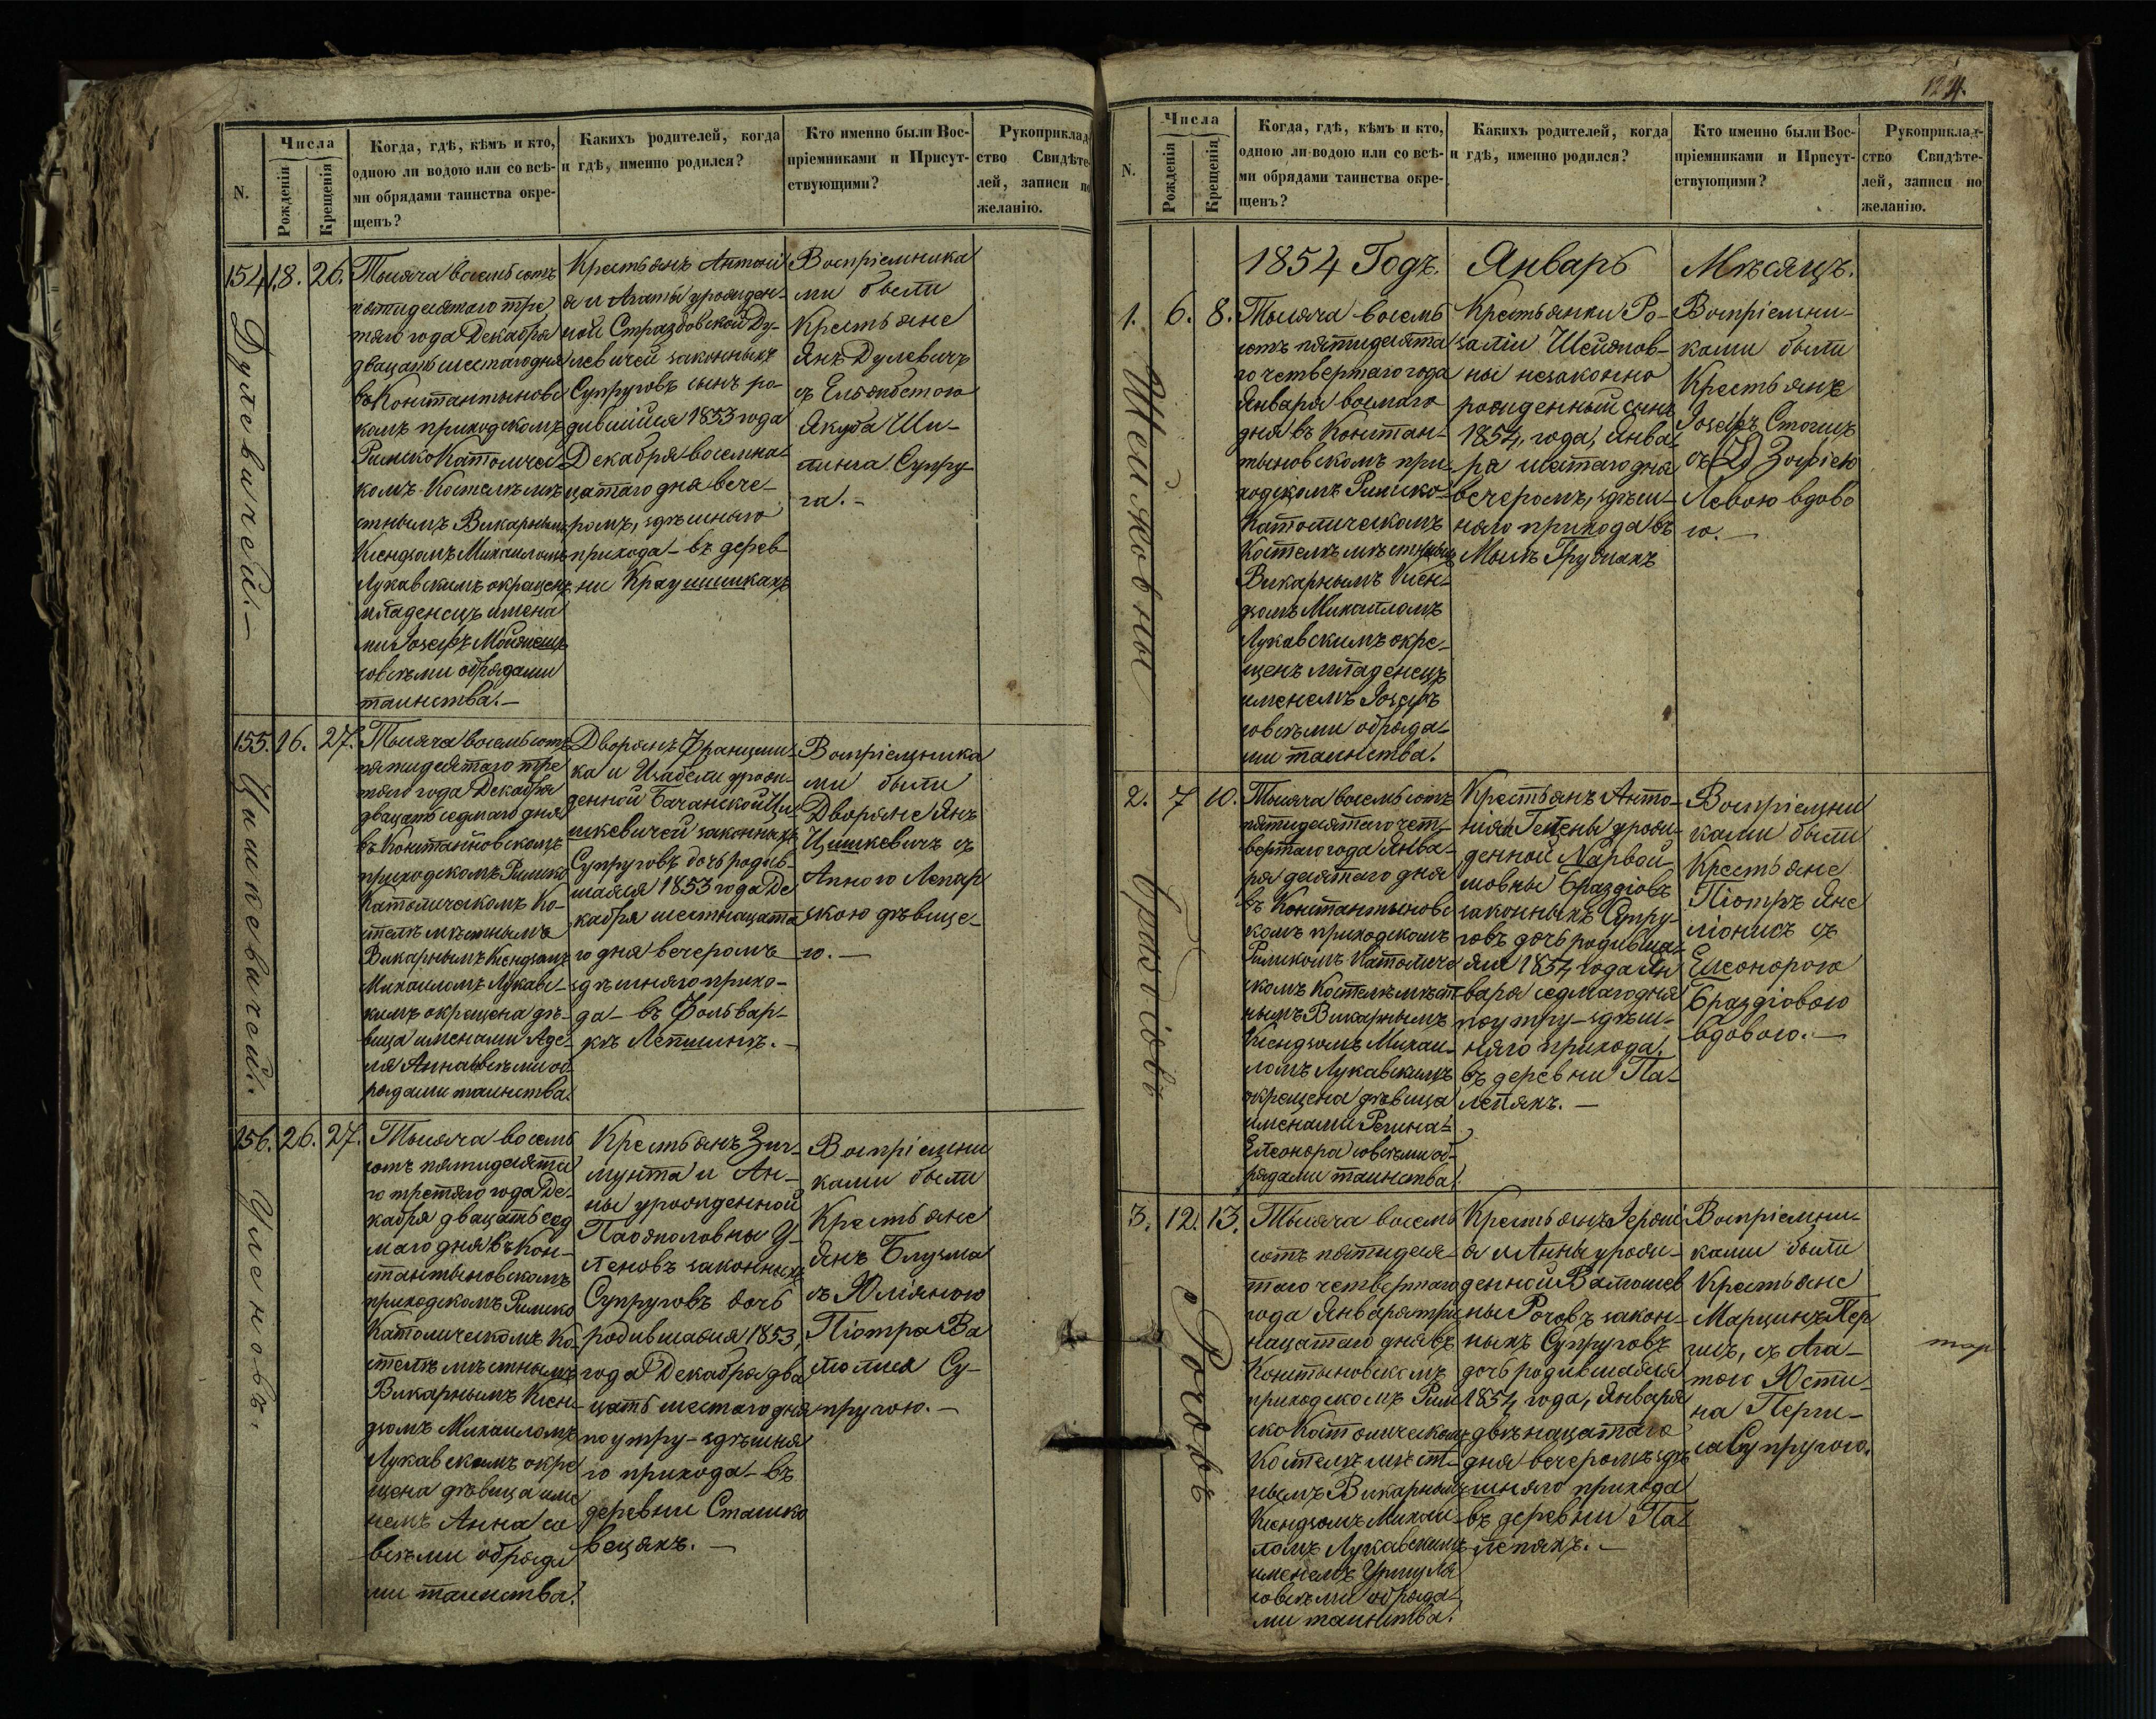 N.
Числа
Рожденія
Крещенія
Когда, гдѣ, кѣмъ и кто,
одною ли водою или со всѣ-
ми обрядами таинства окре-
щенъ?
Какихъ родителей, когда
и гдѣ, именно родился?
Кто именно были Вос-
пріемниками и Присут-
ствующими?
Рукоприклад
ство Свидѣте-
лей, записи по
желанію.
154.
18.
26.
Дулевичей.
Тысяча восемьсотъ
пятидесятаго тре
тяго года Декабря
двацать шестаго дня
въ Константыновс
комъ приходскомъ
Римско Католичес
комъ Костелѣ мѣ
стнымъ Викарнымъ
Ксендзомъ Михаиломъ
Лукавскимъ окрещенъ
младенецъ имена
ми Іозефъ
совсѣми обрядами
таинства.
Крестьянъ Антонi
я и Агаты урожден-
ной Страздовской Ду-
левичей законныхъ
Супруговъ сынъ ро-
дившійся 1853 года
Декабря восемна
цатаго дня вече-
ромъ, здѣшнаго
прихода - въ дерев-
ни Краушишкахъ
Воспріемника
ми были
Крестьяне
Янъ Дулевичъ
съ Ельжбетою
Якуба Ши-
линга Супру-
га.
155.
16.
27.
Цишкевичей.
Тысяча восемьсотъ
пятидесятаго тре
тяго года Декабря
двацать седмаго дня
въ Констайновскомъ
приходскомъ Римско
Католическомъ Ко-
стелѣ мѣстнымъ
Викарнымъ Ксендзомъ
Михаиломъ Лукавс-
кимъ окрещена дѣ-
вица именами Аде-
ля Анна совсѣми об
рядами таинства.
Дворянъ Францишка
ка и Изабели урож-
денной Бачанской Ци-
шкевичей законныхъ
Супруговъ дочь родив-
шаяся 1853 года Де
кабря шестнацата
го дня вечеромъ
здѣшняго прихо-
да - въ Фольвар-
кѣ Лепшинѣ.
Воспріемника
ми были
Дворяне Янъ
Цишкевичъ съ
Анною Лепар
скою дѣвице-
ю.
156.
26.
27.
Уленовъ.
Тысяча восемь
сотъ пятидесята
го третяго года Де-
кабря двацать сед
маго дня въ Кон-
стантыновскомъ
приходскомъ Римско
Католическомъ Ко-
стелѣ мѣстнымъ
Викарнымъ Ксен-
дзомъ Михаиломъ
Лукавскимъ окре
щена дѣвица име
немъ Анна со
всѣми обряда
ми таинства.
Крестьянъ Зиг-
мунта и Ан-
ны урожденной
У-
леновъ законныхъ
Супруговъ дочь
родившаяся 1853,
года Декабря два
цать шестаго дня
поутру - здѣшня
го прихода - въ
деревни Сташко
вецяхъ.
Воспріемни
ками были
Крестьяне
Янъ Блузма
съ Юліяною
Піотра Ва
Су-
пругою.
124.
N.
Числа
Рожденія
Крещенія
Когда, гдѣ, кѣмъ и кто,
одною ли водою или со всѣ-
ми обрядами таинства окре-
щенъ?
Какихъ родителей, когда
и гдѣ, именно родился?
Кто именно были Вос-
пріемниками и Присут-
ствующими?
Рукоприклад-
ство Свидѣте-
лей, записи по
желанію.
1854 Годъ. Январь Мѣсяцъ.
1.
6.
8.
Тысяча восемь
сотъ пятидесята
го четвертаго года
Января восмаго
дня въ Констан-
тыновскомъ при-
ходскомъ Римско-
Католическомъ
Костелѣ мѣстнымъ
Викарнымъ Ксен-
дзомъ Михаиломъ
Лукавскимъ окре-
щенъ младенецъ
именемъ Іозефъ
совсѣми обряда-
ми таинства.
Крестьянки Ро-
заліи
ны незаконно
рожденный сынъ
1854, года, Янва-
ря шестаго дня
вечеромъ, здѣш-
няго прихода въ
Воспріемни-
ками были
Крестьяне
Іозефъ
съ Зофіею
Левою вдово
ю.
2.
7
10.
Браздіовъ
Тысяча восемьсотъ
пятидесятаго чет-
вертаго года Янва-
ря десятаго дня
въ Константыновс
комъ приходскомъ
Римскомъ Католиче
скомъ Костелѣ мѣст
нымъ Викарнымъ
Ксендзомъ Михаи-
ломъ Лукавскимъ
окрещена дѣвица
именами Регина
Елеонора совсѣми об-
рядами таинства.
Крестьянъ Анто-
нія и Гелены урож-
денной Нарвой-
шовны Браздіовъ
законныхъ Супру-
говъ дочь родивша-
яся 1854 года Ян
варя седмаго дня
поутру - здѣш-
няго прихода.
въ деревни Па-
лепяхъ.
Воспріемни
ками были
Крестьяне
Піотръ Яне
ліонисъ съ
Елеонорою
Браздіовою
вдовою.
3.
12.
13.
Роговъ
Тысяча восемь
сотъ пятидеся-
таго четвертаго
года Января три
нацатаго дня въ
приходскомъ Рим
ско Католическомъ
Костелѣ мѣст-
нымъ Викарнымъ
Ксендзомъ Михаи-
ломъ Лукавскимъ
именемъ Уршуля
совсѣми обряда-
ми таинства.
Крестьянъ Іерони
я и Анны урож-
денной
ны Роговъ закон-
ныхъ Супруговъ
дочь родившаяся
1854, года, Января
двѣнацатаго
дня вечеромъ здѣ
шняго прихода
въ деревни Па-
лепяхъ.
Воспріемни-
ками были
Крестьяне
Марцинъ Пер
гисъ, съ Ага-
тою Юсти-
на Перги-
са Супругою.